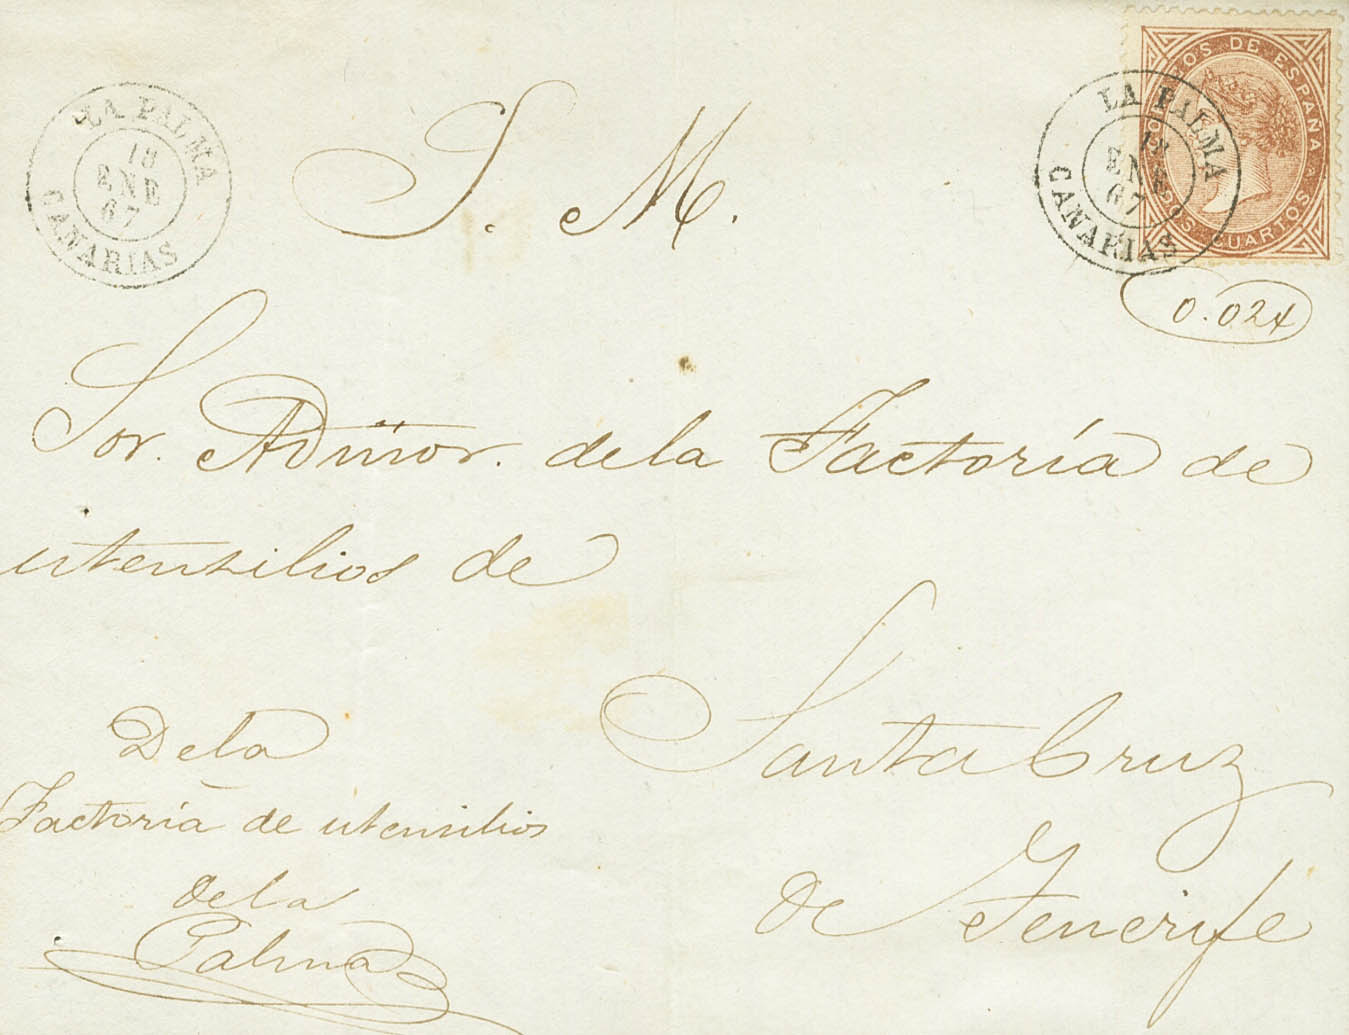 LA PALMA
18
ENE
67
CANARIAS
CORREOS DE ESPAÑA
DOS CUARTOS
LA PALMA
18
ENE
67
CANARIAS
S. M.
0.024
Sor. Admor. de la Factoría de
utensilios de
Santa Cruz
de Tenerife
De la
Factoría de utensilios
de la
Palma